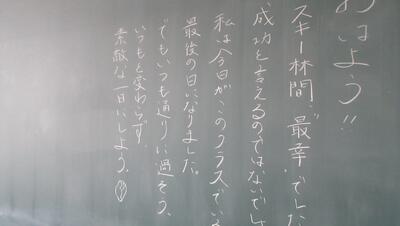 おはよう!!
スキー林間、"最幸"でした
成功を言えるのではないでし
私は今日がこのクラスでいる
最後の日になりました。
でもいつも通りに過そう、
いつもと変わらず
素敵な一日にしよう。